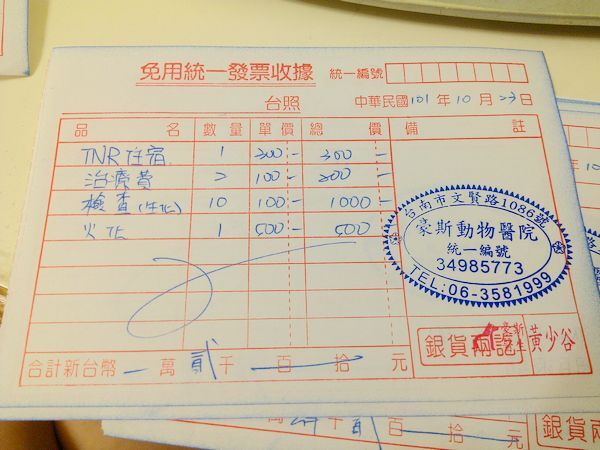 免用統一發票收據 統一編號
台照 中華民國101年10月23日
品名 數量 單價 總價 備註
TNR住宿 1 300- 300-
治療費 2 100- 200-
檢查(生化) 10 100- 1000-
火化 1 500- 500-
台南市文賢路1086號
豪斯動物醫院
統一編號
34985773
TEL:06-3581999
合計新台幣 萬貳千 百 拾 元
銀貨兩訖
黃少谷
萬 千 百 拾 元
銀貨兩